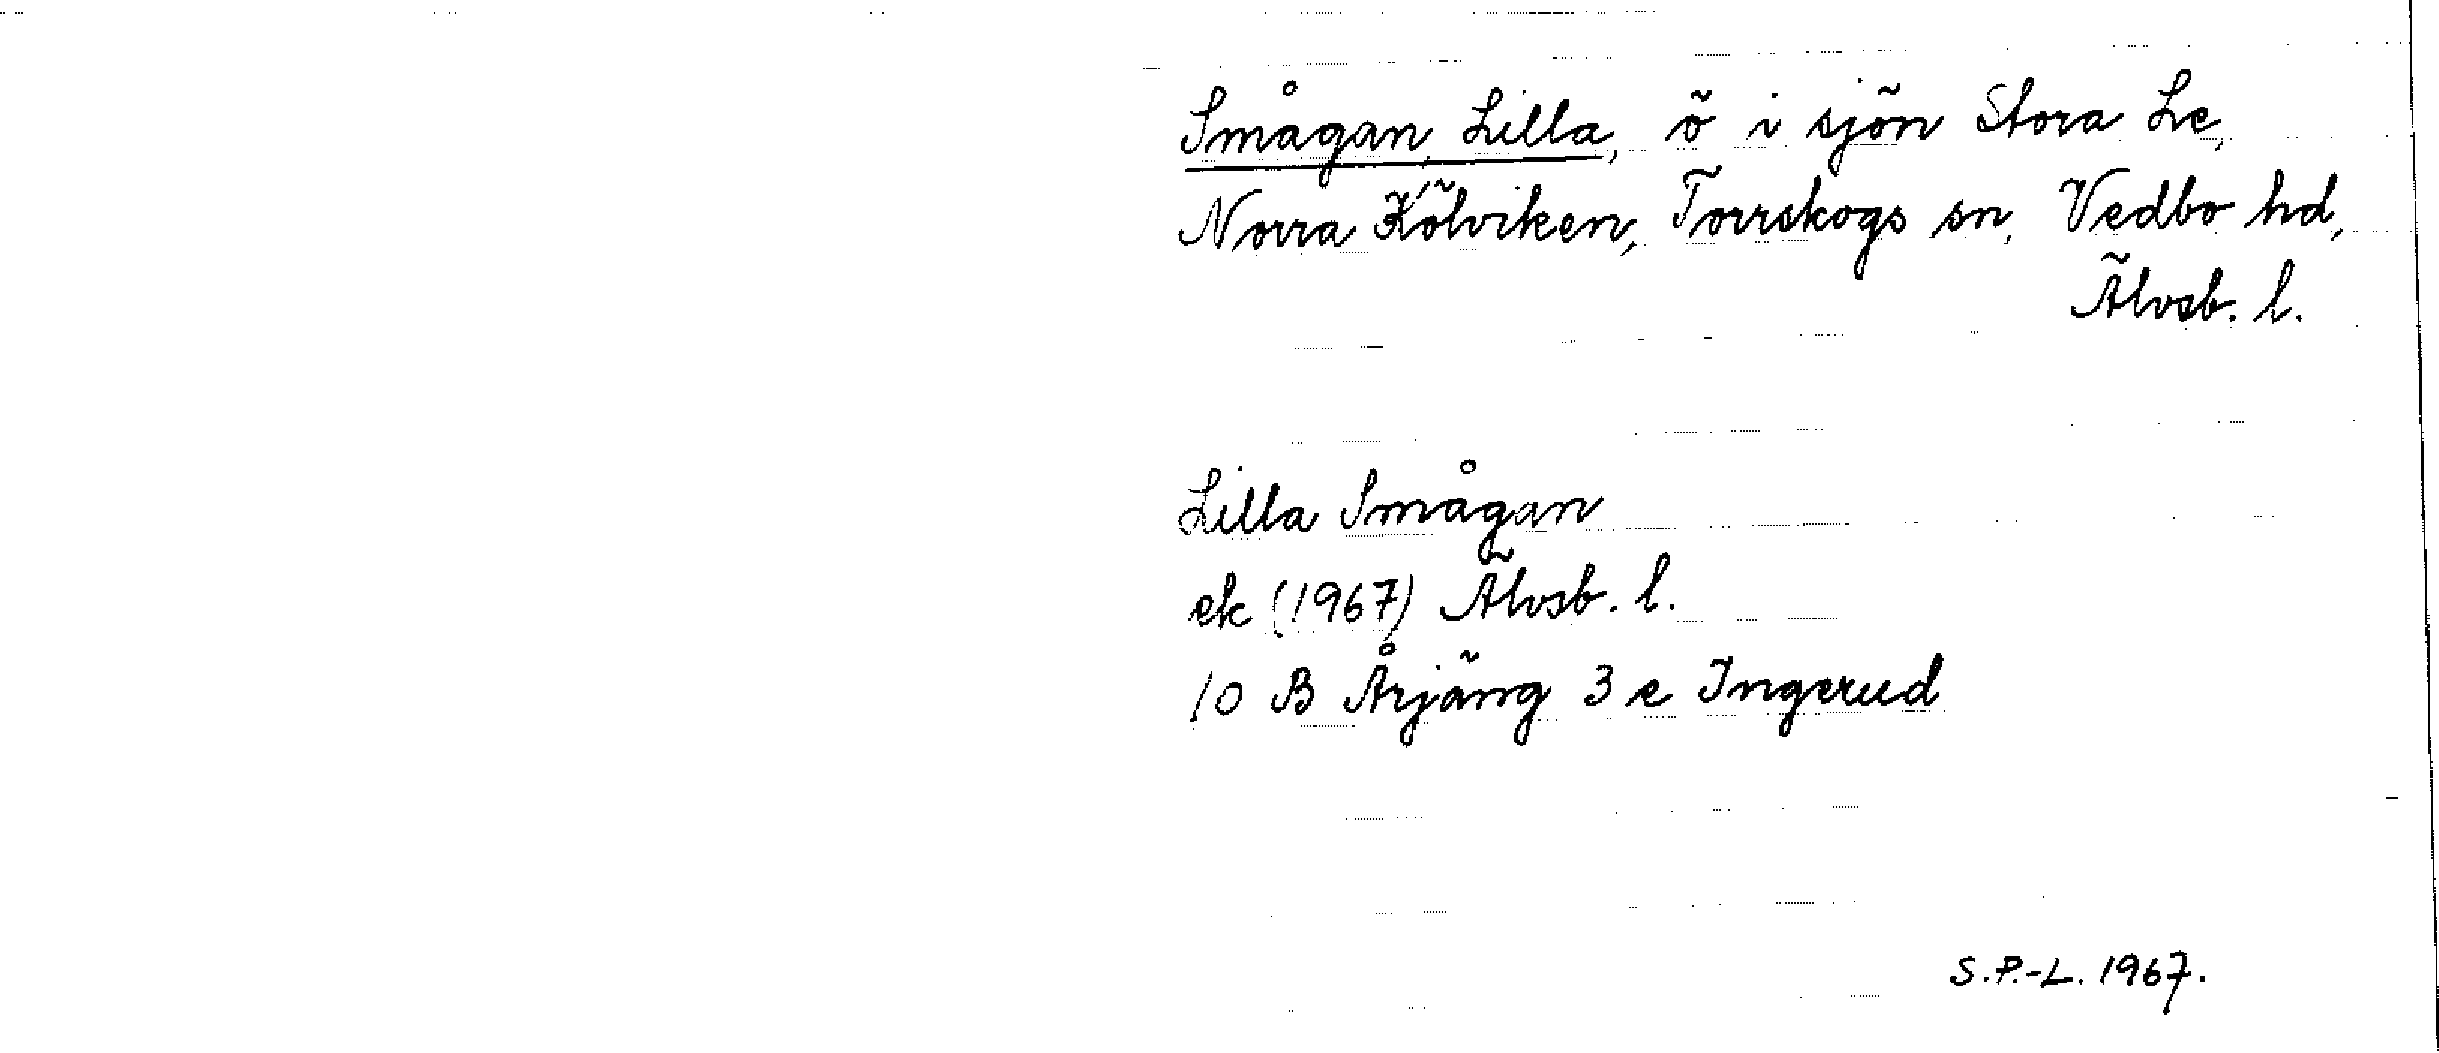 Smågan, Lilla, ö i sjön Stora Le,
Norra Kölviken, Torrskogs sn, Vedbo hd,
Älvsb. l.
Lilla Smågan
ek (1967) Älvsb. l.
10 B Årjäng 3 e Ingerud
S.P.-L. 1967.